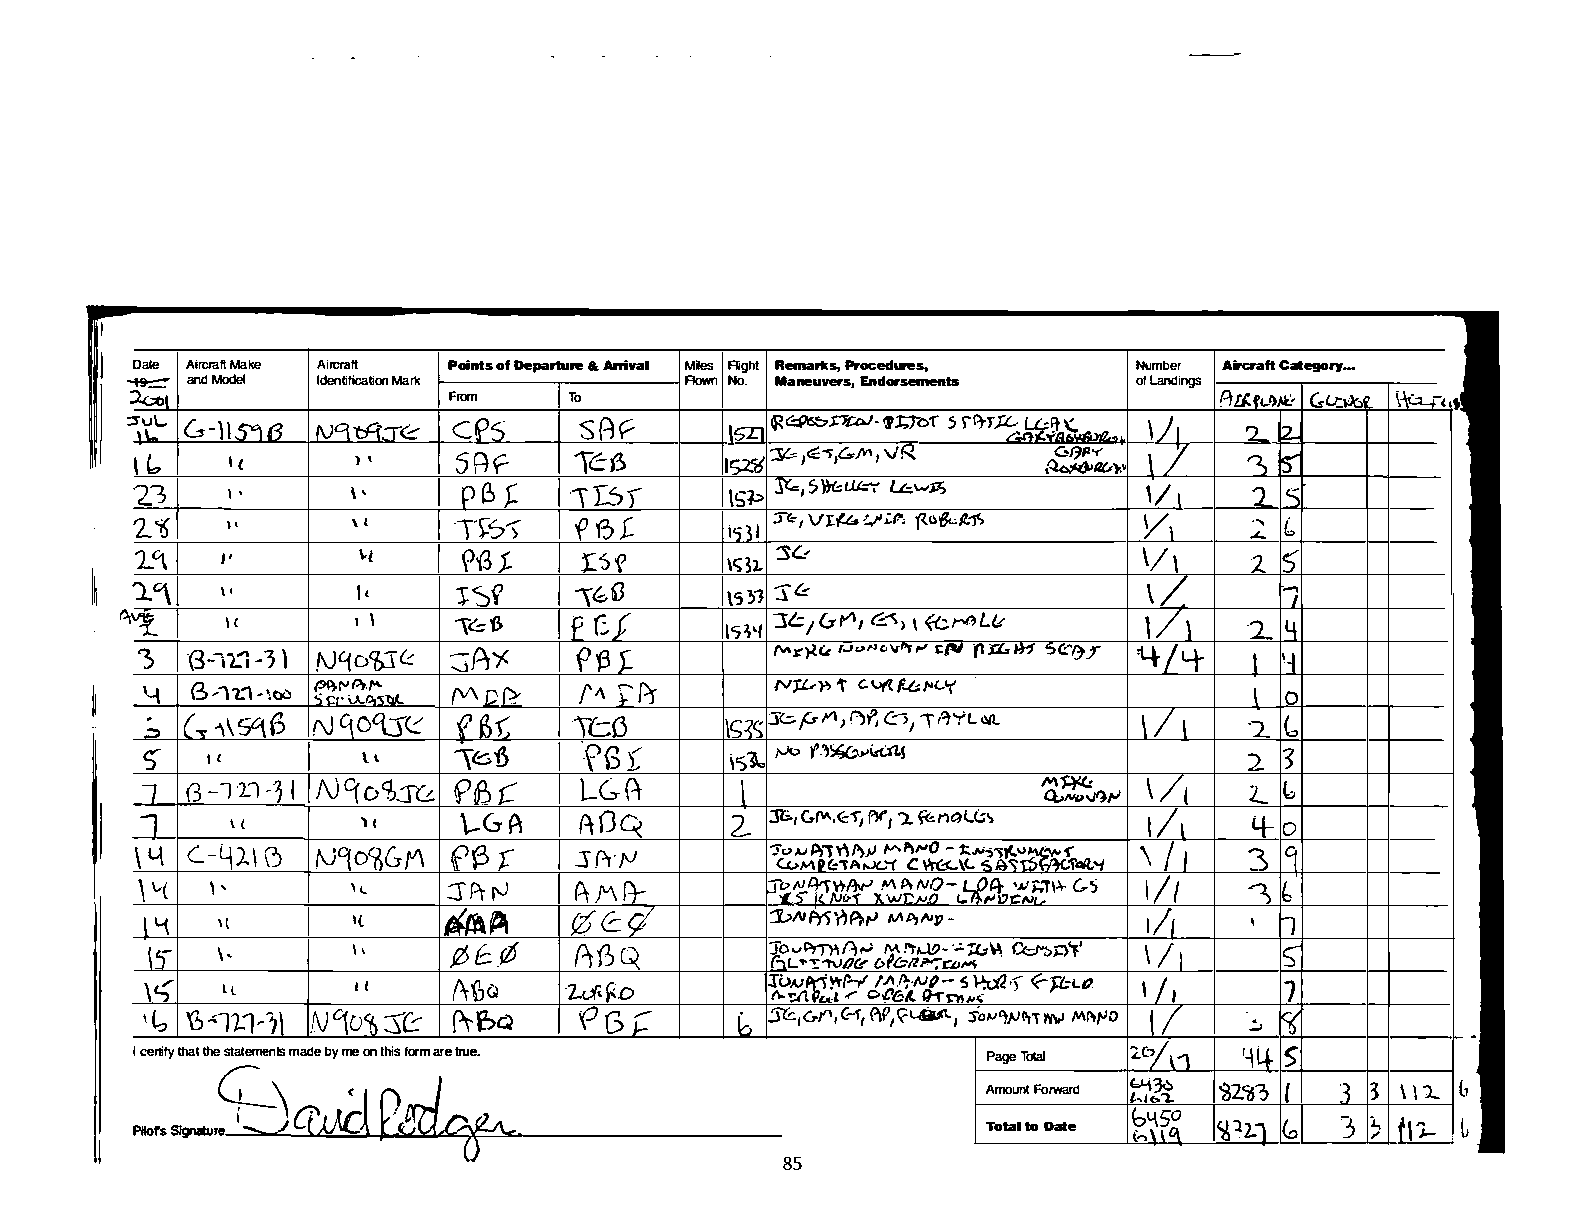 Date Aircraft Make and Model Aircraft Identification Mark Points of Departure & Arrival Miles Flown Flight No. Remarks, Procedures, Maneuvers, Endorsements Number of Landings Aircraft Category...
19
2001 From To AIRPLANE GLIDER
JUL 16 G-1159B N909JE CPS SAF 1527 REPOSITION - PITOT STATIC LEAK GARY ROXBURGH 1/1 2 2
16 " " SAF TEB 1528 JE, ET, GM, VR GARY ROXBURGH 1/ 3 5
23 " " PBI TIST 1530 JE, SHELLEY LEWIS 1/1 2 5
28 " " TIST PBI 1531 JE, VIRGINIA ROBERTS 1/1 2 6
29 " " PBI ISP 1532 JE 1/1 2 5
29 " " ISP TEB 1533 JE 1/ 7
AUG " " TEB PBI 1534 JE, GM, ET, 1 FEMALE 1/1 2 4
3 B-727-31 N908JE JAX PBI MIKE DONOVAN IN RIGHT SEAT 4/4 1 4
4 B-727-100 PAN AM SIMULATOR MIA MIA NIGHT CURRENCY 1 0
G-1159B N909JE PBI TEB 1535 JE, GM, AP, ET, TAYLOR 1/1 2 6
5 " " TEB PBI 1536 NO PASSENGERS 2 3
7 B-727-31 N908JE PBI LGA 1 MIKE DONOVAN 1/1 2 6
7 " " LGA ABQ 2 JE, GM, ET, AP, 2 FEMALES 1/1 4 0
14 C-421B N908GM PBI JAN JONATHAN MANO - INSTRUMENT COMPETANCY CHECK SATISFACTORY 1/1 3 9
14 " " JAN AMA JONATHAN MANO - LOA WITH GS 25 KNOT XWIND LANDING 1/1 3 6
14 " " AMA ØEØ JONATHAN MANO - 1/1 7
15 " " ØEØ ABQ JONATHAN MANO - HIGH DENSITY ALTITUDE OPERATIONS 1/1 5
15 " " ABQ ZORRO JONATHAN MANO - SHORT FIELD AIRPORT OPERATIONS 1/1 7
16 B-727-31 N908JE ABQ PBI 6 JE, GM, ET, AP, JONANATHAN MANO 1/ 3 8
I certify that the statements made by me on this form are true. Page Total 20/17 44 5
Amount Forward 6430 6102 8283 1 3 3 112 6
Pilot's Signature David Rodgers Total to Date 6450 6119 8327 6 3 3 112 6
85